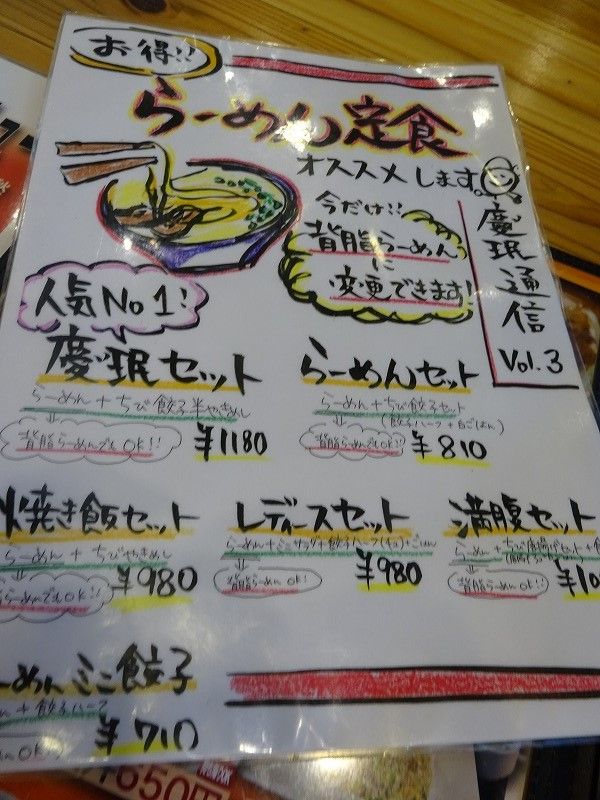 お得!!
らーめん定食
オススメします。
今だけ!!
背脂らーめん
に
変更できます!
慶珉通信
Vol.3
人気No1!
慶珉セット
らーめん+ちび餃子半やきめし
背脂らーめんでもOK!!
¥1180
らーめんセット
らーめん+ちび餃子セット
(餃子ハーフ+白ごはん)
背脂らーめんOK!!
¥810
焼き飯セット
らーめん+ちびやきめし
背脂らーめんでもOK!!
¥980
レディースセット
背脂らーめんOK!
¥980
満腹セット
背脂らーめんOK!
らーめんミニ餃子
+餃子ハーフ
OK!
¥710
650円